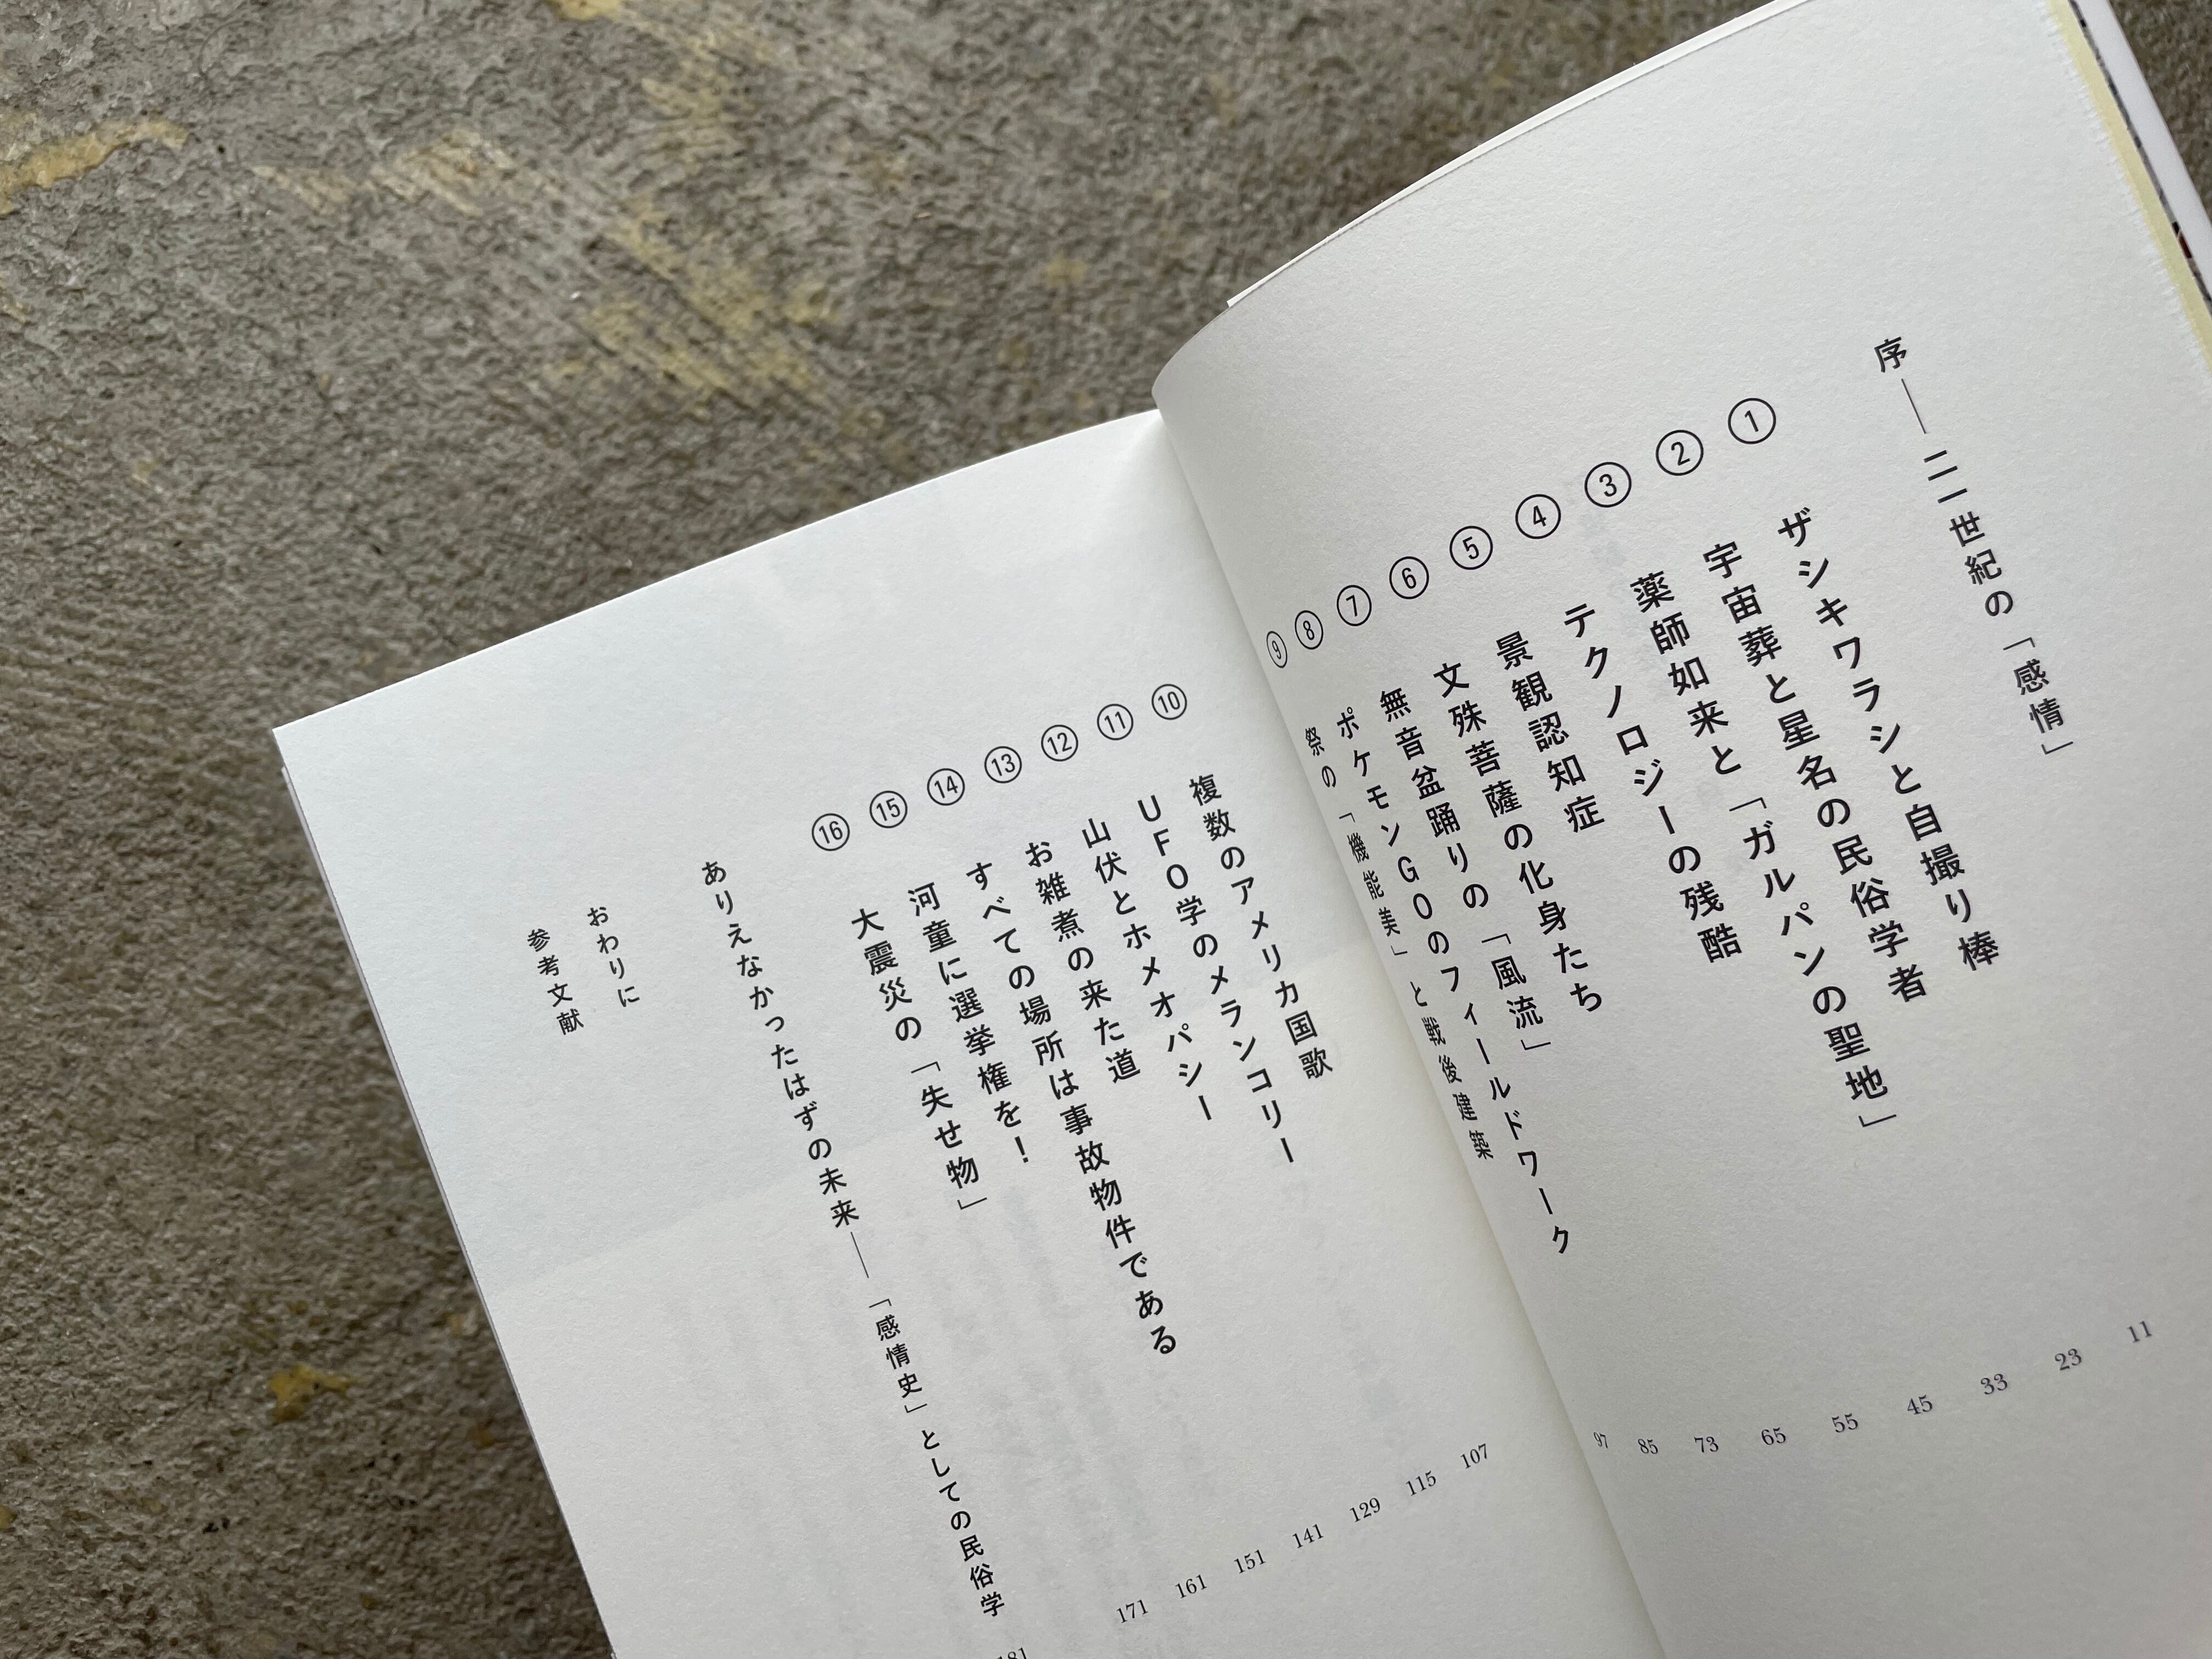 序――二一世紀の「感情」
① ザシキワラシと自撮り棒 11
② 宇宙葬と星名の民俗学者 23
③ 薬師如来と「ガルパンの聖地」 33
④ テクノロジーの残酷 45
⑤ 景観認知症 55
⑥ 文殊菩薩の化身たち 65
⑦ 無音盆踊りの「風流」 73
⑧ ポケモンGOのフィールドワーク 85
⑨ 祭の「機能美」と戦後建築 97
⑩ 複数のアメリカ国歌 107
⑪ UFO学のメランコリー 115
⑫ 山伏とホメオパシー 129
⑬ お雑煮の来た道 141
⑭ すべての場所は事故物件である 151
⑮ 河童に選挙権を! 161
⑯ 大震災の「失せ物」 171
ありえなかったはずの未来――「感情史」としての民俗学 181
おわりに
参考文献